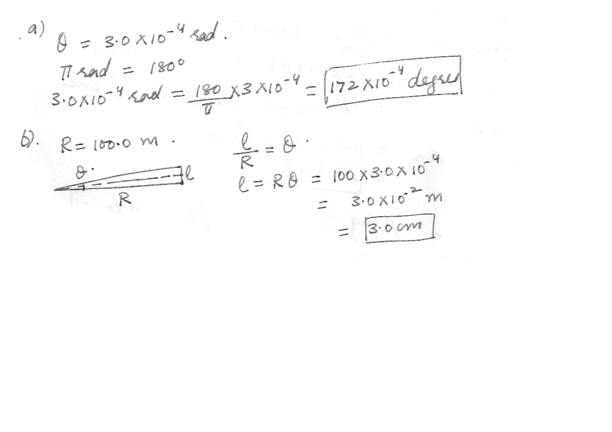 a) θ = 3.0 × 10⁻⁴ rad.
π rad = 180°
3.0×10⁻⁴ rad = 180/π × 3 × 10⁻⁴ = 172 × 10⁻⁴ degree
b). R = 100.0 m.
θ. l
R
l/R = θ.
l = Rθ = 100 × 3.0 × 10⁻⁴
= 3.0 × 10⁻² m
= 3.0 cm